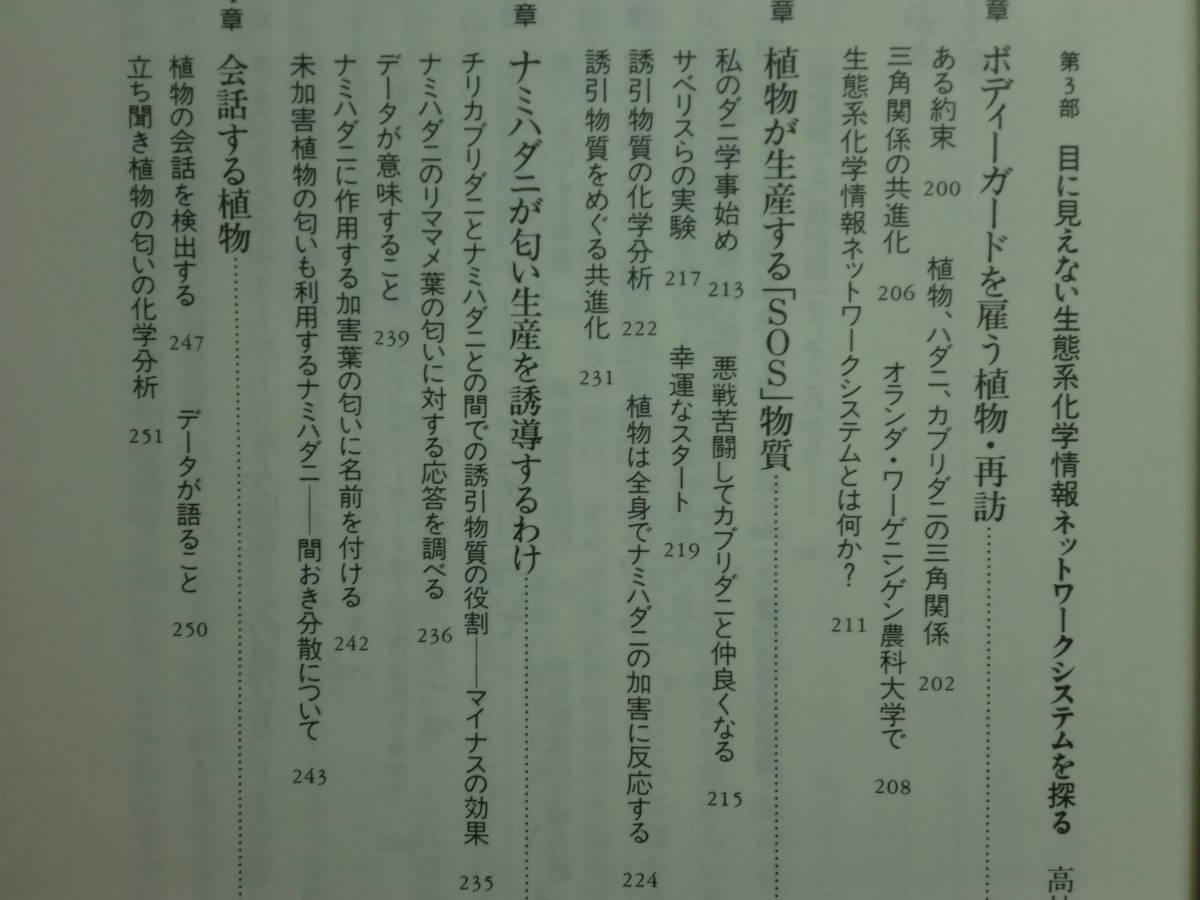 第3部　目に見えない生態系化学情報ネットワークシステムを探る　高
章　ボディーガードを雇う植物・再訪
ある約束　200　植物、ハダニ、カブリダニの三角関係　202
三角関係の共進化　206　オランダ・ワーゲニンゲン農科大学で　208
生態系化学情報ネットワークシステムとは何か？　211
章　植物が生産する「SOS」物質
私のダニ学事始め　213　悪戦苦闘してカブリダニと仲良くなる　215
サベリスらの実験　217　幸運なスタート　219
誘引物質の化学分析　222　植物は全身でナミハダニの加害に反応する　224
誘引物質をめぐる共進化　231
章　ナミハダニが匂い生産を誘導するわけ
チリカブリダニとナミハダニとの間での誘引物質の役割――マイナスの効果　235
ナミハダニのリママメ葉の匂いに対する応答を調べる　236
データが意味すること　239
ナミハダニに作用する加害葉の匂いに名前を付ける　242
未加害植物の匂いも利用するナミハダニ――間おき分散について　243
章　会話する植物
植物の会話を検出する　247　データが語ること　250
立ち聞き植物の匂いの化学分析　251